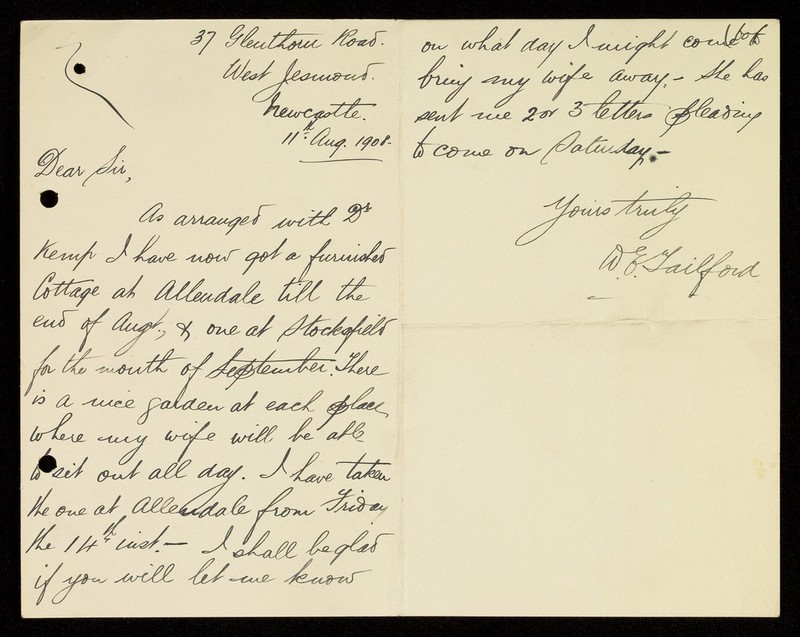 37 Glenthorn Road.
West Jesmond.
Newcastle.
11th Aug. 1908.
Dear Sir,
As arranged with Dr
Kemp I have now got a furnished
Cottage at Allendale till the
end of Augt., & one at Stocksfield
for the month of September. There
is a nice garden at each place
where my wife will be able
to sit out all day. I have taken
the one at Allendale from Friday
the 14th inst. — I shall be glad
if you will let me know
on what day I might come to
bring my wife away. — She has
sent me 2 or 3 letters pleading
to come on Saturday —
Yours truly
W.E. Tailford